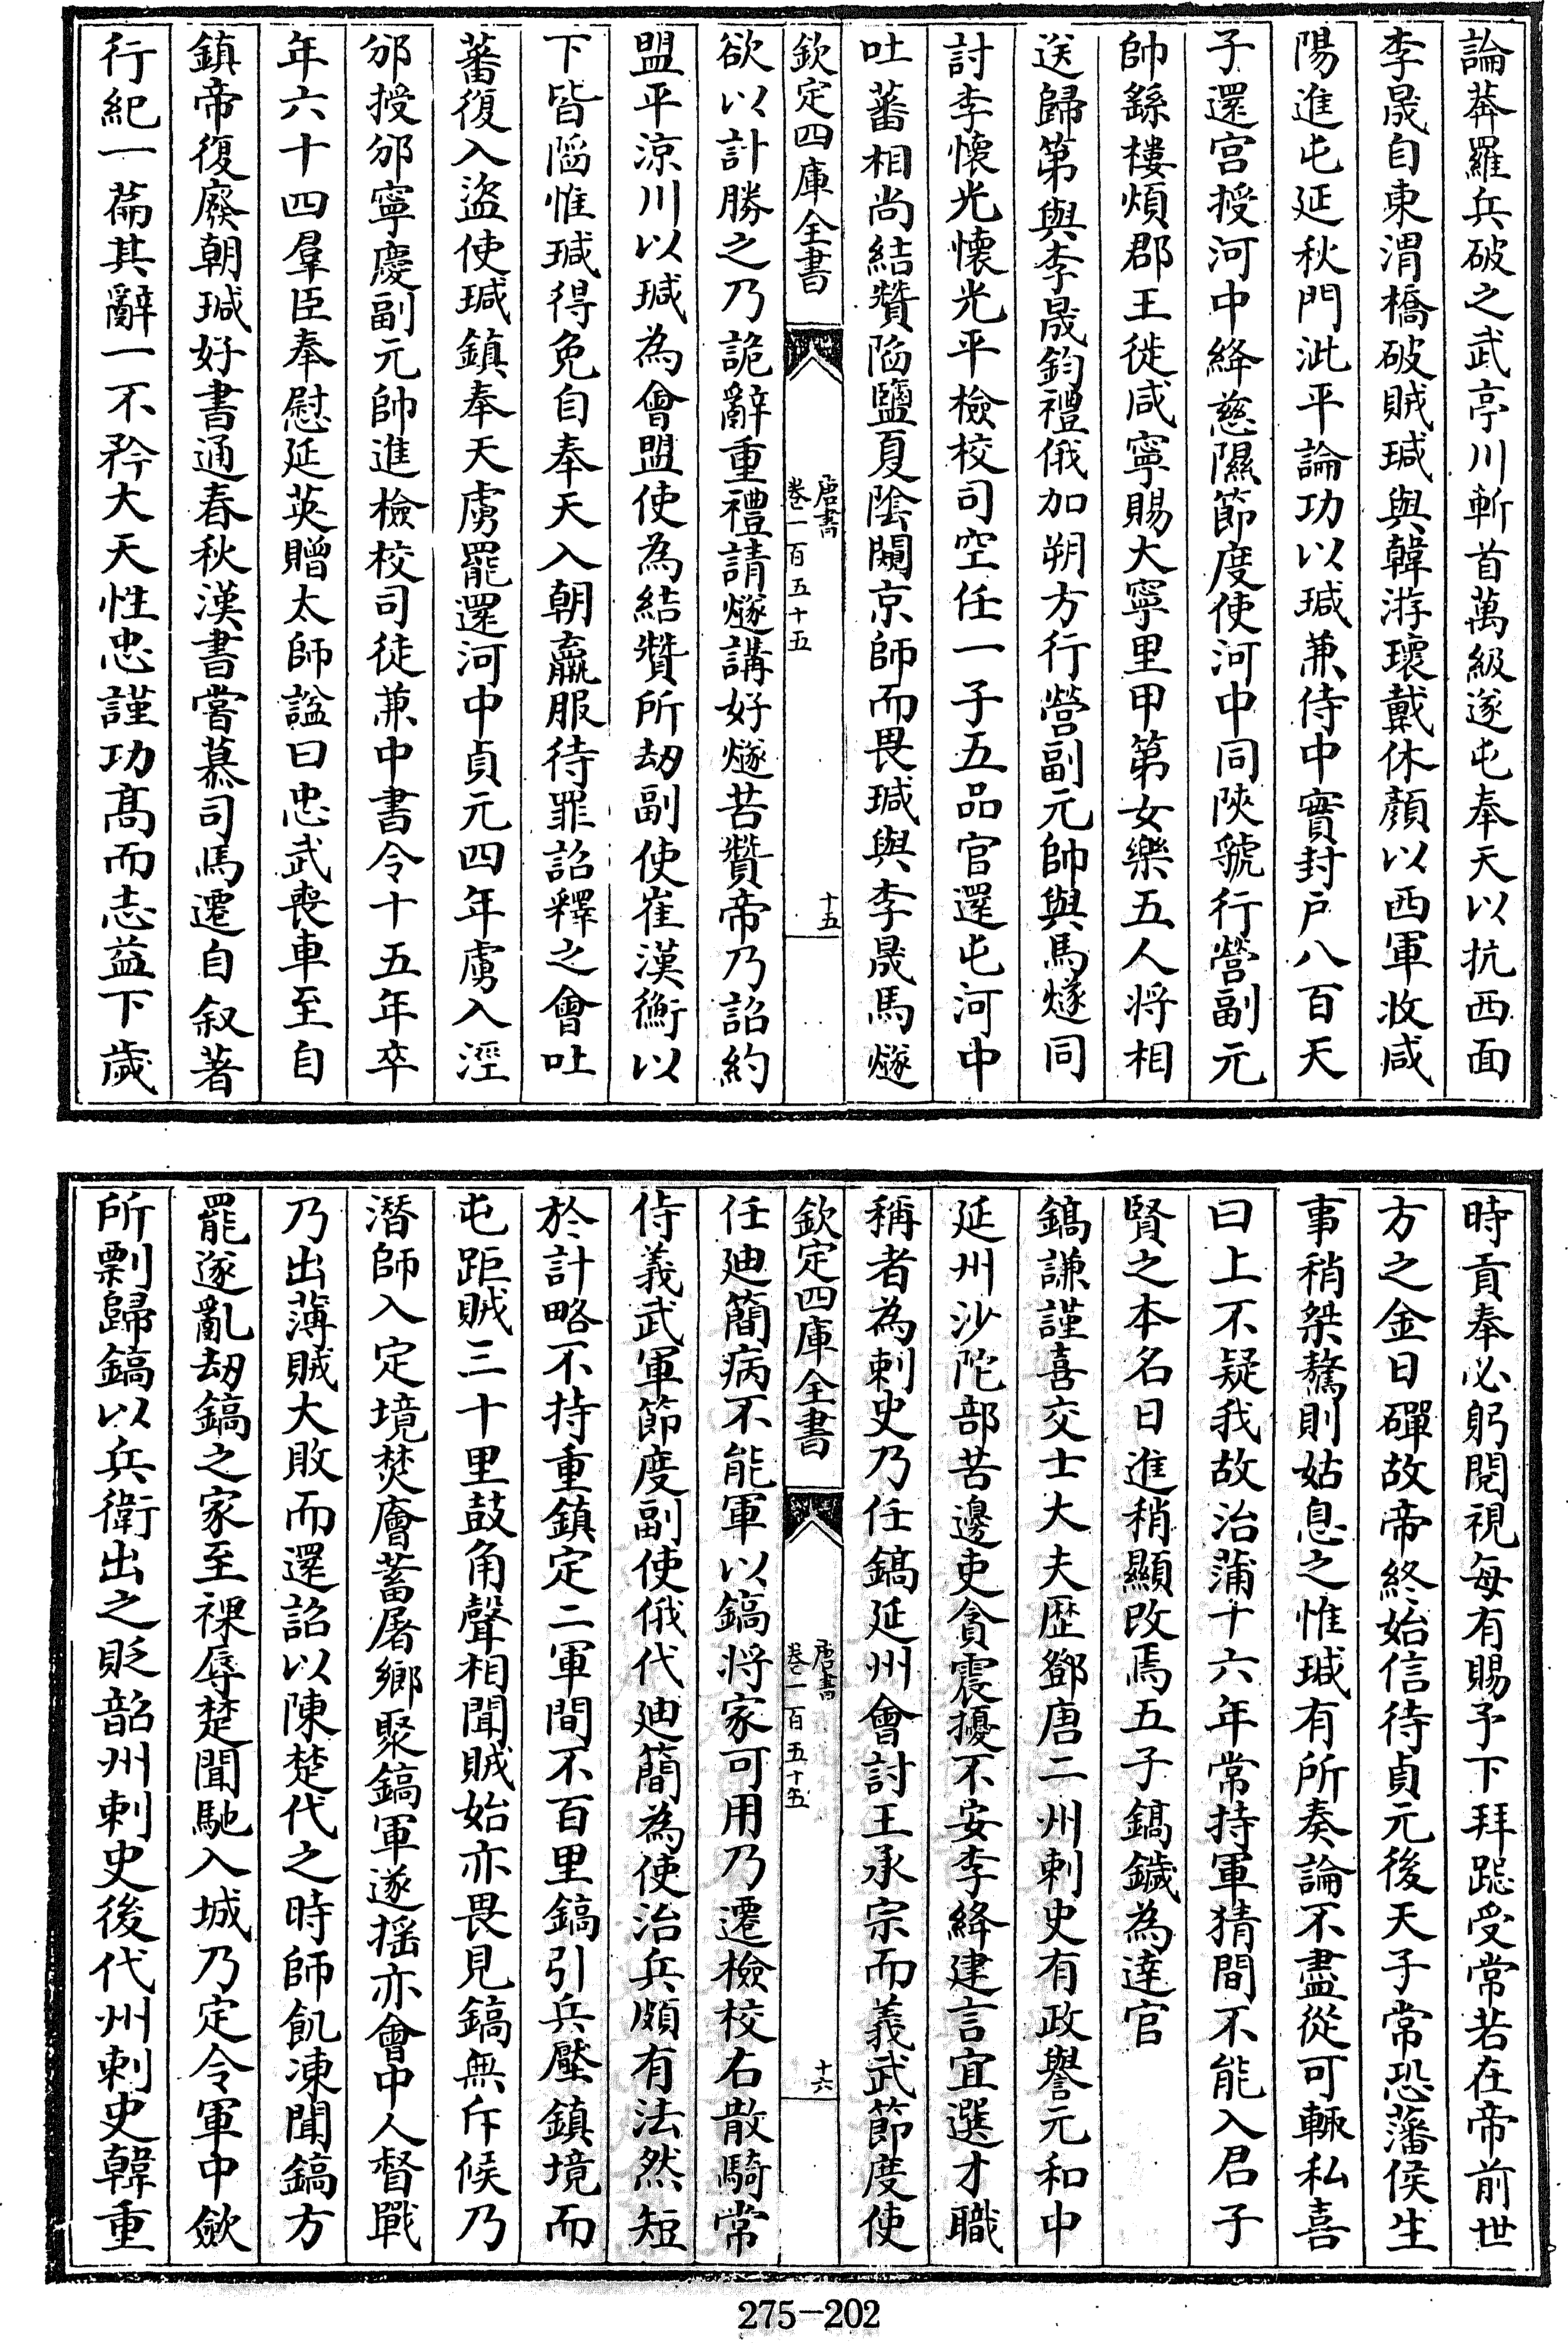 論莽羅兵破之武亭川斬首萬級遂屯奉天以抗西面
李晟自東渭橋破賊瑊與韓游瓌戴休顔以西軍收咸
陽進屯延秋門泚平論功以瑊兼侍中實封戶八百天
子還宫授河中絳慈隰節度使河中同陜虢行營副元
帥繇樓煩郡王徙咸寧賜大寧里甲第女樂五人將相
送歸第與李晟鈞禮俄加朔方行營副元帥與馬燧同
討李懷光懷光平檢校司空任一子五品官還屯河中
吐蕃相尚結贊陷鹽夏陰闚京師而畏瑊與李晟馬燧
欽定四庫全書
唐書
卷一百五十五
十五
欲以計勝之乃詭辭重禮請燧講好燧苦贊帝乃詔約
盟平涼川以瑊為會盟使為結贊所劫副使崔漢衡以
下皆陷惟瑊得免自奉天入朝羸服待罪詔釋之會吐
蕃復入盜使瑊鎮奉天虜罷還河中貞元四年虜入涇
邠授邠寧慶副元帥進檢校司徒兼中書令十五年卒
年六十四羣臣奉慰延英贈太師諡曰忠武喪車至自
鎮帝復廢朝瑊好書通春秋漢書嘗慕司馬遷自叙著
行紀一篇其辭一不矜大天性忠謹功髙而志益下歲
時貢奉必躬閱視每有賜予下拜跽受常若在帝前世
方之金日磾故帝終始信待貞元後天子常恐藩侯生
事稍桀驁則姑息之惟瑊有所奏論不盡從可輒私喜
曰上不疑我故治蒲十六年常持軍猜間不能入君子
賢之本名日進稍顯改焉五子鎬鐬為達官
鎬謙謹喜交士大夫歴鄧唐二州刺史有政譽元和中
延州沙陀部苦邊吏貪震擾不安李絳建言宜選才職
稱者為刺史乃任鎬延州會討王承宗而義武節度使
欽定四庫全書
唐書
卷一百五十五
十六
任廸簡病不能軍以鎬將家可用乃遷檢校右散騎常
侍義武軍節度副使俄代廸簡為使治兵頗有法然短
於計略不持重鎮定二軍間不百里鎬引兵壓鎮境而
屯距賊三十里鼓角聲相聞賊始亦畏見鎬無斥候乃
潛師入定境焚廥蓄屠鄉聚鎬軍遂摇亦會中人督戰
乃出薄賊大敗而還詔以陳楚代之時師飢凍聞鎬方
罷遂亂劫鎬之家至裸辱楚聞馳入城乃定令軍中斂
所剽歸鎬以兵衛出之貶韶州刺史後代州刺史韓重
275-202